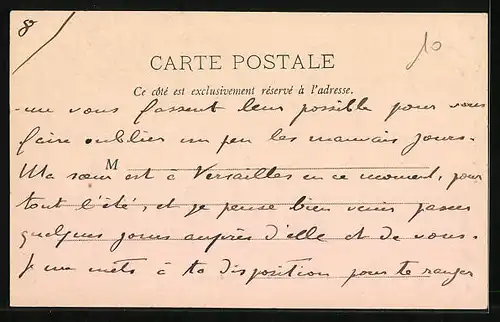 8
10
CARTE POSTALE
Ce côté est exclusivement réservé à l'adresse.
vous fassent leur possible pour vous
faire oublier un peu les mauvais jours.
M
Ma sœur est à Versailles en ce moment, pour
tout l'été, et je pense bien venir passer
quelques jours auprès d'elle et de vous.
Je me mets à ta disposition pour te ranger